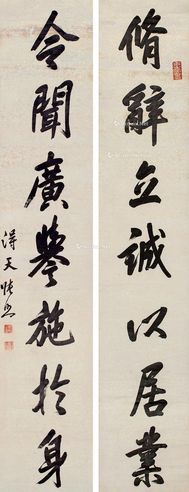 脩辭立誠以居業
令聞廣譽施於身
得天張照